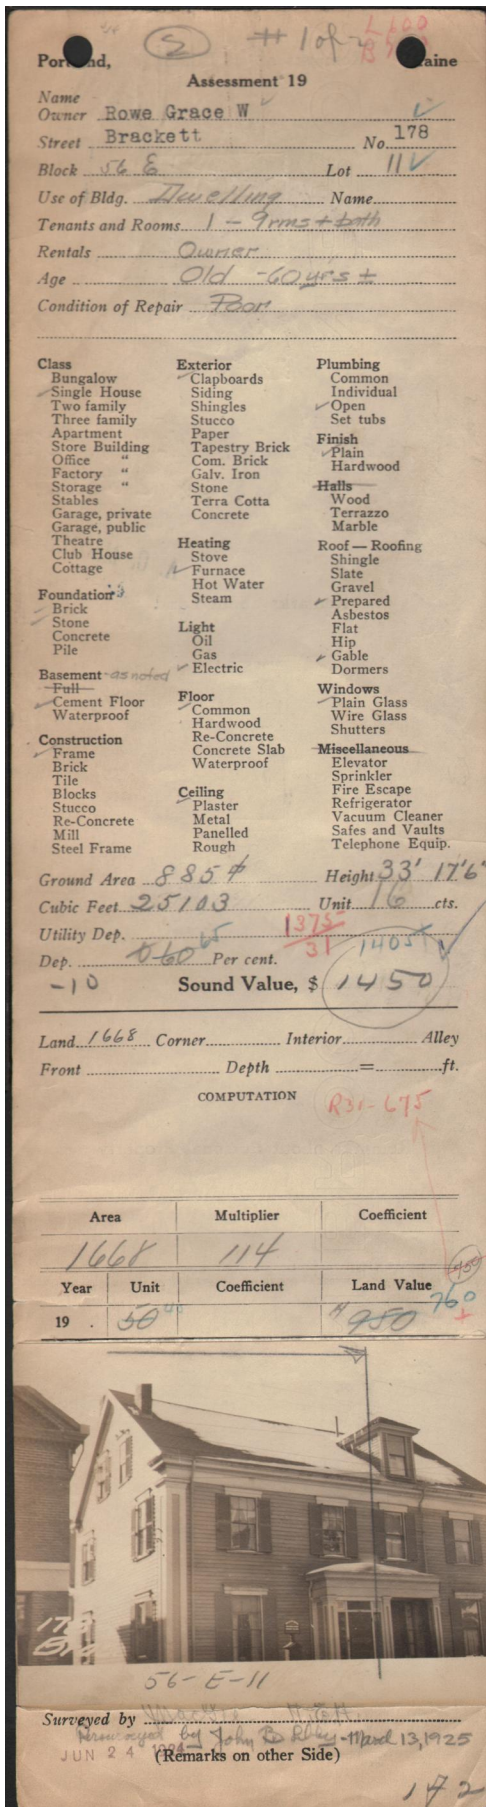 # 1 of 2
L 600
Portland, Maine
Assessment 19
Name
Owner Rowe Grace W
Street Brackett No. 178
Block 56 E Lot 11
Use of Bldg. Dwelling Name
Tenants and Rooms 1 - 9 rms + bath
Rentals Owner
Age Old - 60 yrs ±
Condition of Repair Poor
Class
Bungalow
Single House
Two family
Three family
Apartment
Store Building
Office "
Factory "
Storage "
Stables
Garage, private
Garage, public
Theatre
Club House
Cottage
Foundation
Brick
Stone
Concrete
Pile
Basement - as noted
Full
Cement Floor
Waterproof
Construction
Frame
Brick
Tile
Blocks
Stucco
Re-Concrete
Mill
Steel Frame
Exterior
Clapboards
Siding
Shingles
Stucco
Paper
Tapestry Brick
Com. Brick
Galv. Iron
Stone
Terra Cotta
Concrete
Heating
Stove
Furnace
Hot Water
Steam
Light
Oil
Gas
Electric
Floor
Common
Hardwood
Re-Concrete
Concrete Slab
Waterproof
Ceiling
Plaster
Metal
Panelled
Rough
Plumbing
Common
Individual
Open
Set tubs
Finish
Plain
Hardwood
Halls
Wood
Terrazzo
Marble
Roof — Roofing
Shingle
Slate
Gravel
Prepared
Asbestos
Flat
Hip
Gable
Dormers
Windows
Plain Glass
Wire Glass
Shutters
Miscellaneous
Elevator
Sprinkler
Fire Escape
Refrigerator
Vacuum Cleaner
Safes and Vaults
Telephone Equip.
Ground Area 885 Height 33' 17'6"
Cubic Feet 25103 Unit 16 cts.
Utility Dep. 1375 31 1405
Dep. 60 65 Per cent.
-10 Sound Value, $ 1450
Land 1668 Corner Interior Alley
Front Depth = ft.
COMPUTATION R31-675
Area Multiplier Coefficient
1668 114
Year Unit Coefficient Land Value 760
19 . 50 980
178
56-E-11
Surveyed by
by John B -March 13, 1925
JUN 24 1924 (Remarks on other Side)
142